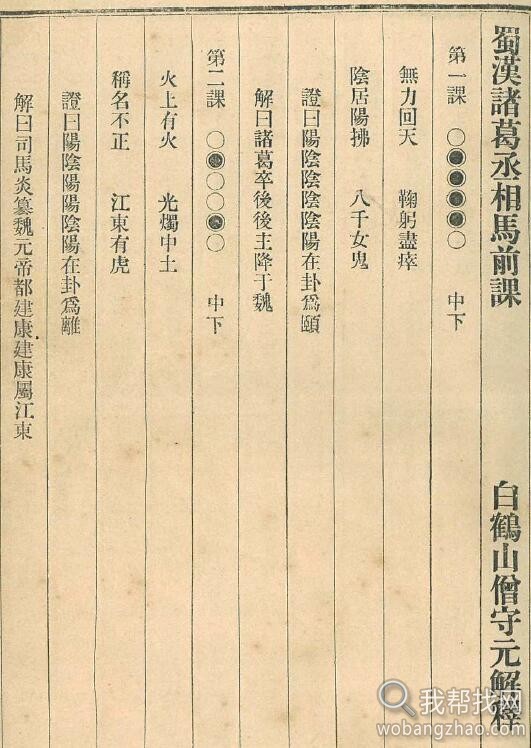 蜀漢諸葛丞相馬前課　白鶴山僧守元解釋
第一課　○●●●●○　中下
無力回天　鞠躬盡瘁
陰居陽拂　八千女鬼
證曰陽陰陰陰陰陽在卦爲頤
解曰諸葛卒後後主降于魏
第二課　○●○○●○　中下
火上有火　光燭中土
稱名不正　江東有虎
證曰陽陰陽陽陰陽在卦爲離
解曰司馬炎篡魏元帝都建康建康屬江東
我帮找网
wobangzhao.com